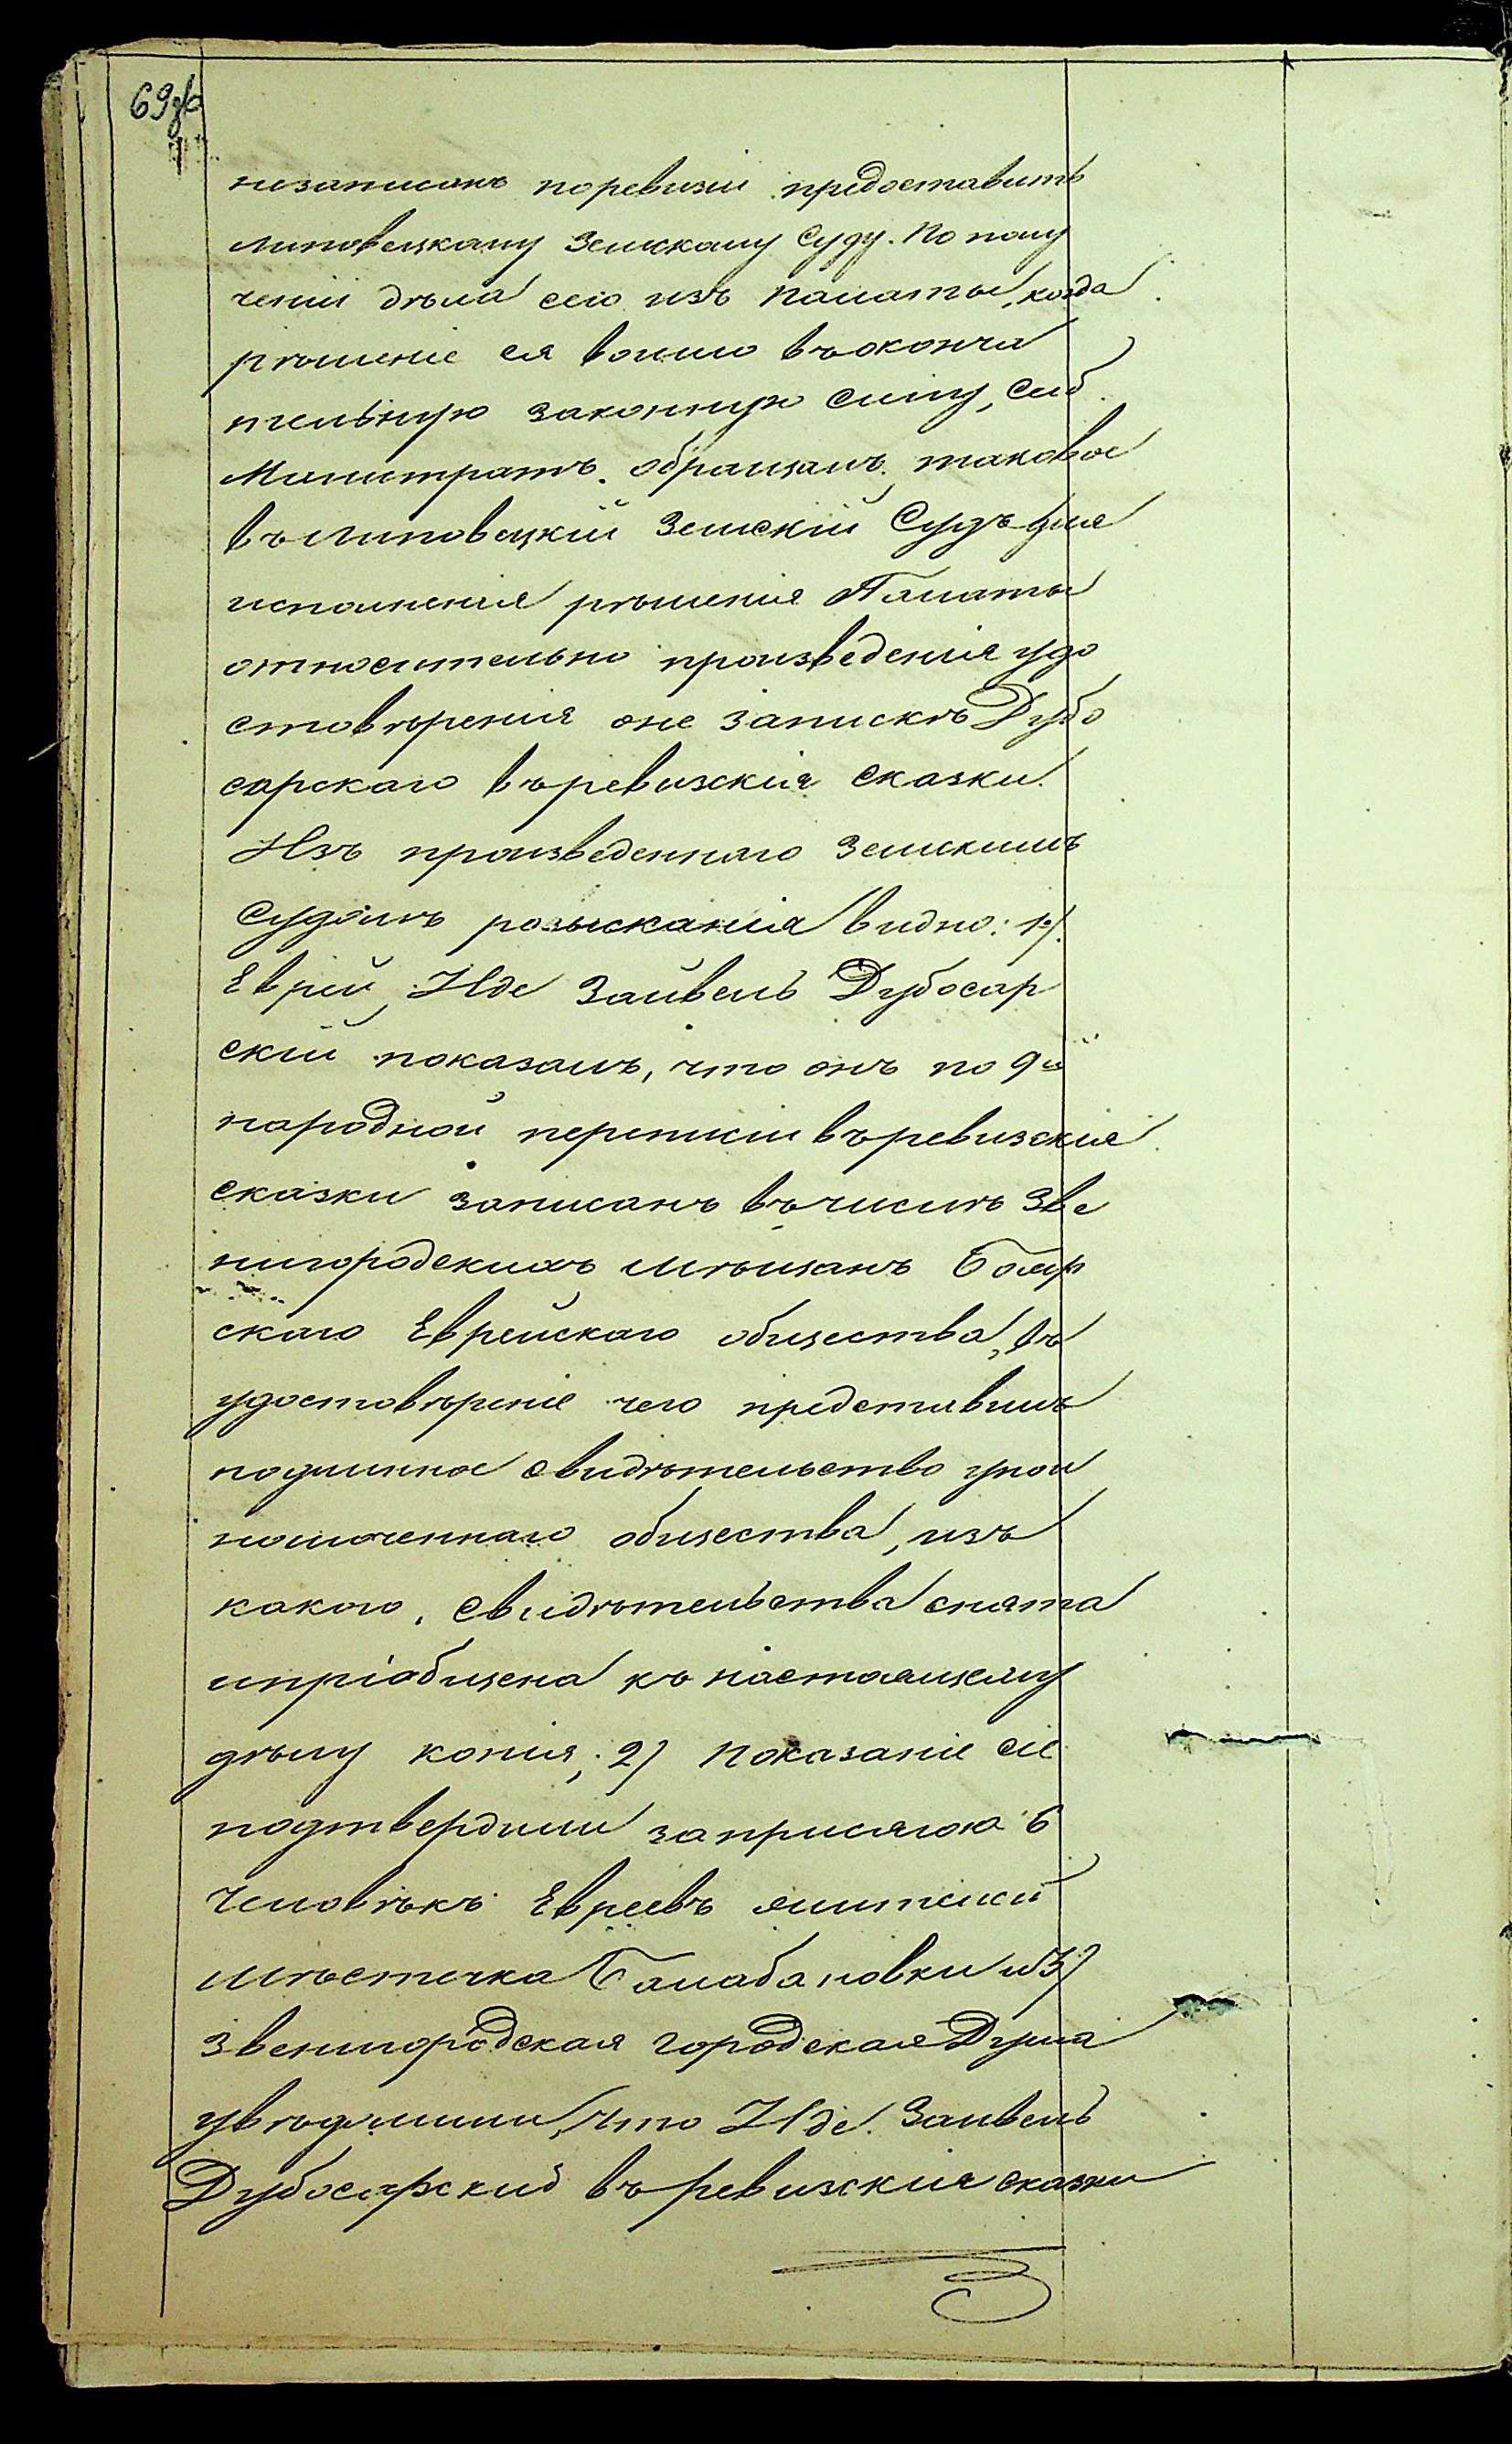 69 об
незаписанъ поревизіи предоставить
Липовецкому Земскому Суду. По полу
ченіи дѣла сего изъ Палаты, когда
рѣшеніе ея вошло въоконча
тельную законную силу, сей
Магистратъ обращалъ таковое
въ Липовецкій Земскій Судъ для
исполненія рѣшенія Палаты
относительно произведенія удо
стовѣренія оне запискѣ Дубо
сарскаго въревизскія сказки.
Изъ произведеннаго Земскимъ
Судомъ розысканія видно: 1).
Еврей Иде Зайвель Дубосар
скій показалъ, что онъ по 9й
народной переписи въревизскія
сказки записанъ въчислѣ Зве
нигородскихъ мѣщанъ Бояр
скаго Еврейскаго общества, въ
удостовѣреніе чего представилъ
подлинное свидѣтельство упол
номоченнаго общества, изъ
какого свидѣтельства снята
ипріобщена къ настоящему
дѣлу копія; 2) Показаніе сіе
подтвердили заприсягою 6
человѣкъ Евреевъ жителей
мѣстечка Балабановки и 3)
Звенигородская городская Дума
увѣдомила, что Иде Зайвель
Дубосарскій въ ревизскія сказки